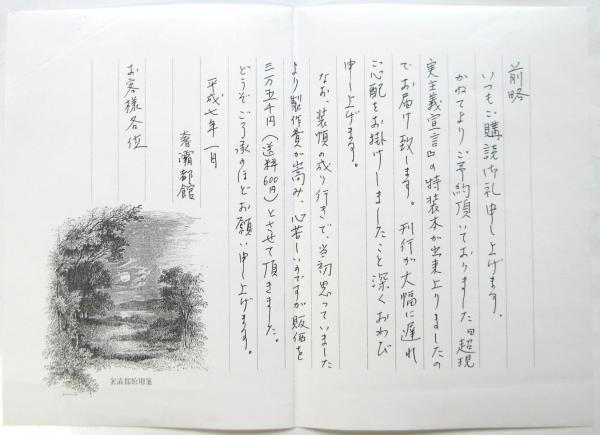 前略
いつもご購読御礼申し上げます。
かねてよりご予約頂いておりました『超現
実主義宣言』の特装本が出来上りましたの
でお届け致します。刊行が大幅に遅れ
ご心配をお掛けしましたこと深くおわび
申し上げます。
なお、装幀の成り行きで、当初思っていました
より製作費が嵩み、心苦しいのですが販価を
三万五千円（送料600円）とさせて頂きました。
どうぞご了承のほどお願い申し上げます。
平成七年一月
奢灞都館
お客様各位
奢灞都館用箋